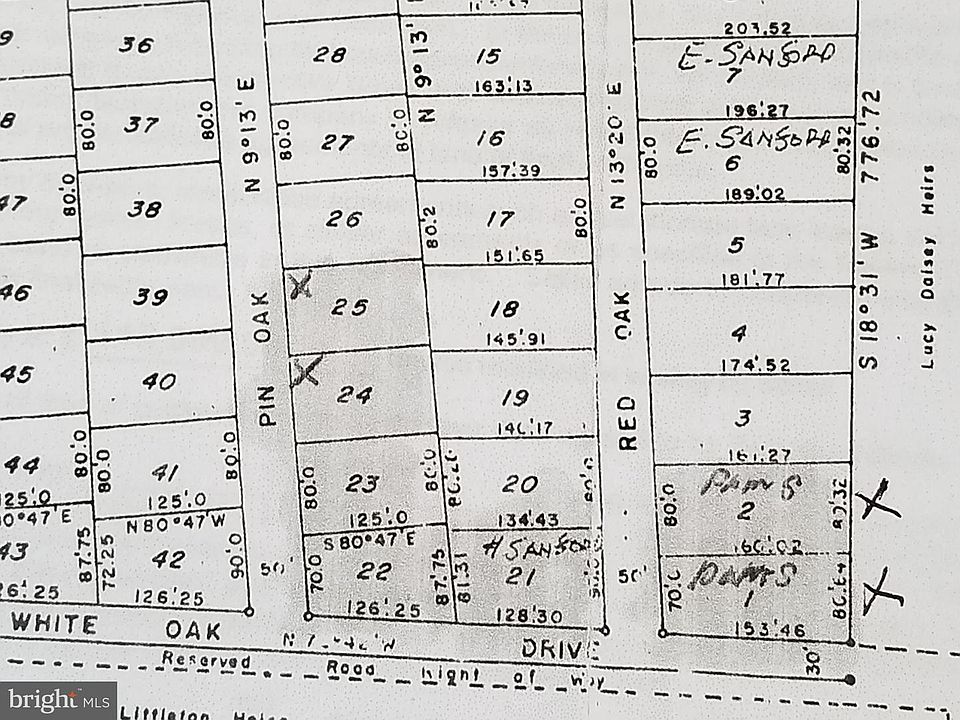 203.52
9
36
28
15
163.13
E. SANFORD
7
196.27
N 9°13' E
N 9°13'
N 13°20' E
8
80.0
37
80.0
80.0
27
80.0
16
157.39
80.0
E. SANFORD
6
80.32
189.02
S 18°31' W 776.72
Lucy Daisey Heirs
47
80.0
38
26
80.2
17
80.0
151.65
5
181.77
46
39
PIN OAK
X
25
18
145.91
RED OAK
4
174.52
45
40
X
24
19
3
161.27
44
80.0
125.0
80.0
41
80.0
125.0
80.0
23
125.0
20
134.43
80.0
2
80.32
X
N 80°47' W
S 80°47' E
H SANFORD
43
87.75
72.25
42
90.0
126.25
50'
70.0
22
87.75
126.25
81.31
21
128.30
50'
1
153.46
X
WHITE OAK
DRIVE
30'
Reserved Road Right of Way
bright MLS
Littleton Heirs